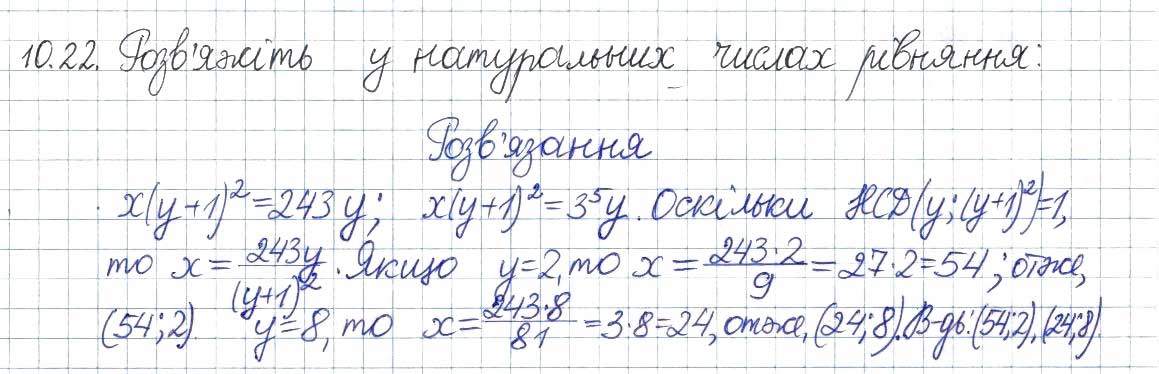 10.22. Розв'яжіть у натуральних числах рівняння:
Розв'язання
x(y+1)²=243y; x(y+1)²=3⁵y. Оскільки НСД(y;(y+1)²)=1,
то x=243y/(y+1)². Якщо y=2, то x=243·2/9=27·2=54; отже,
(54;2). y=8, то x=243·8/81=3·8=24, отже, (24;8). В-дь: (54;2), (24;8).